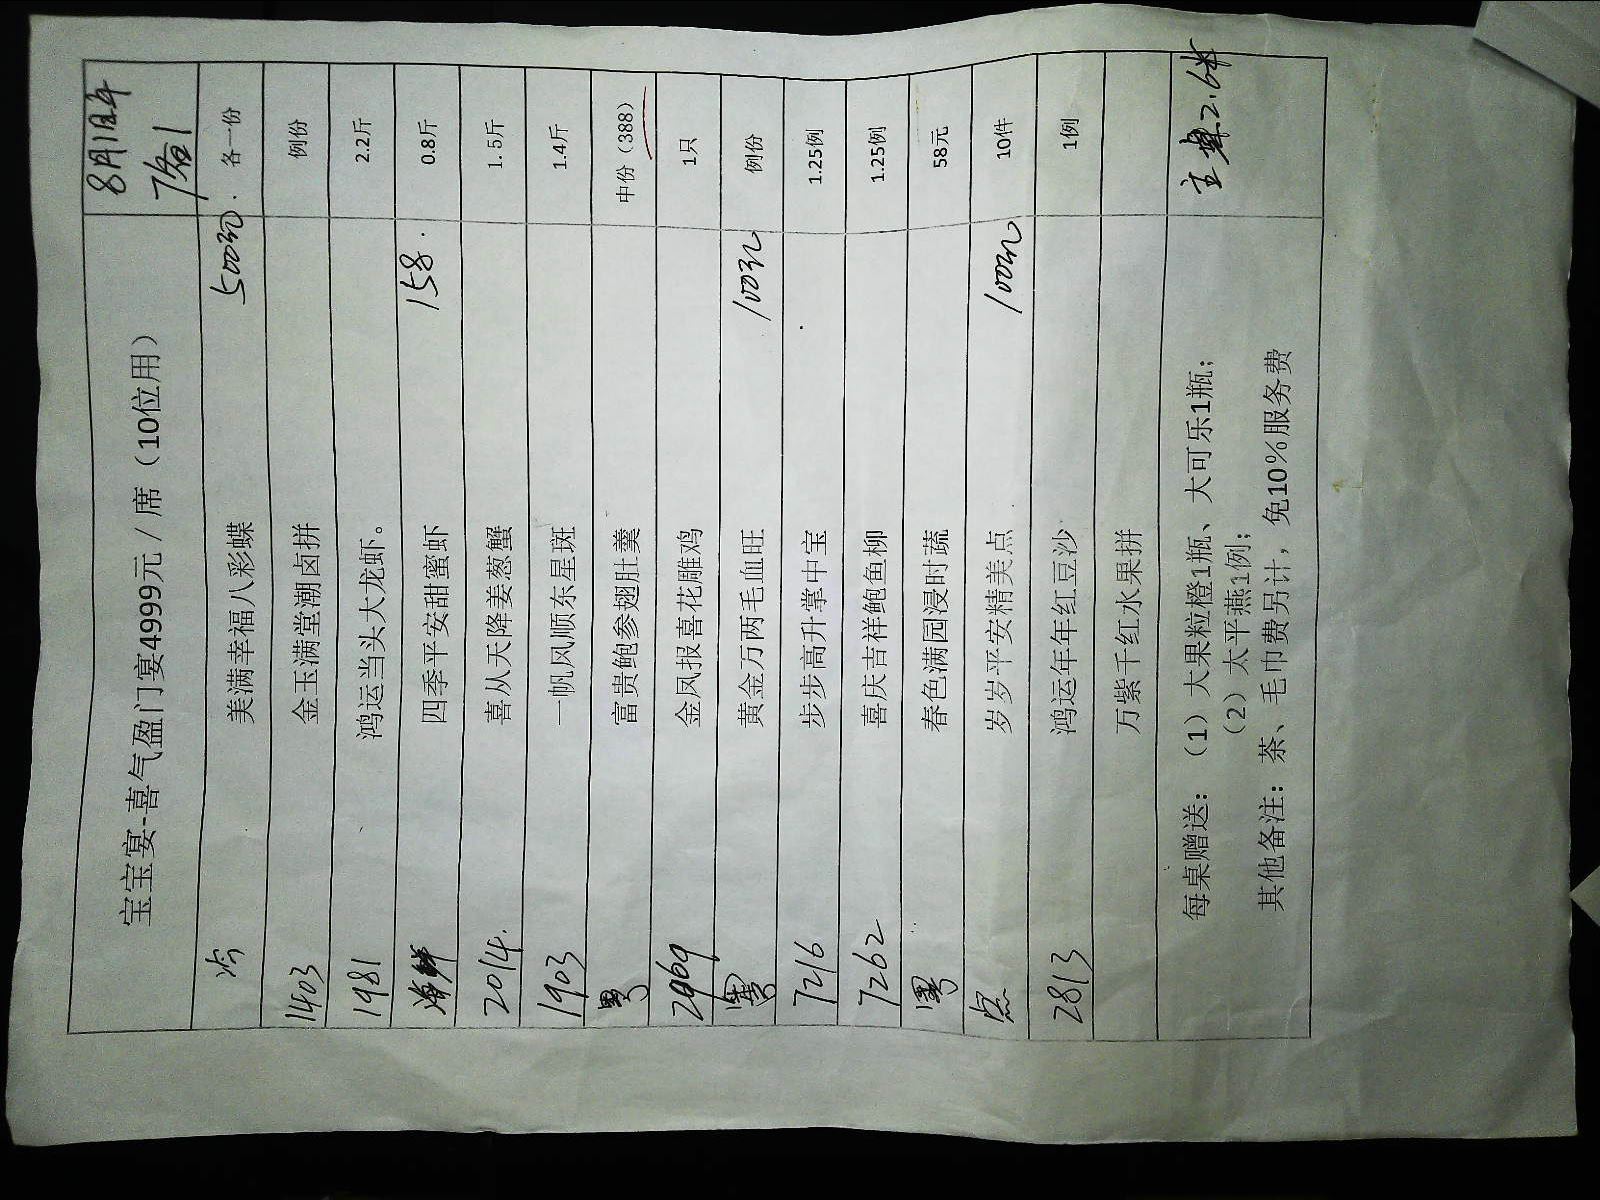 宝宝宴-喜气盈门宴4999元/席（10位用） 8月1日午
7备1
冷 美满幸福八彩蝶 500元. 各一份
1403 金玉满堂潮卤拼 例份
1981 鸿运当头大龙虾。 2.2斤
海鲜 四季平安甜蜜虾 158. 0.8斤
2014. 喜从天降姜葱蟹 1.5斤
1903 一帆风顺东星斑 1.4斤
粤 富贵鲍参翅肚羹 中份（388）
2969 金凤报喜花雕鸡 1只
粤 黄金万两毛血旺 100元 例份
7216 步步高升掌中宝 1.25例
7262 喜庆吉祥鲍鱼柳 1.25例
粤 春色满园浸时蔬 58元
点 岁岁平安精美点 100元 10件
2813 鸿运年年红豆沙 1例
万紫千红水果拼
每桌赠送：（1）大果粒橙1瓶、大可乐1瓶； 主桌2.6米
（2）太平燕1例；
其他备注：茶、毛巾费另计，免10%服务费